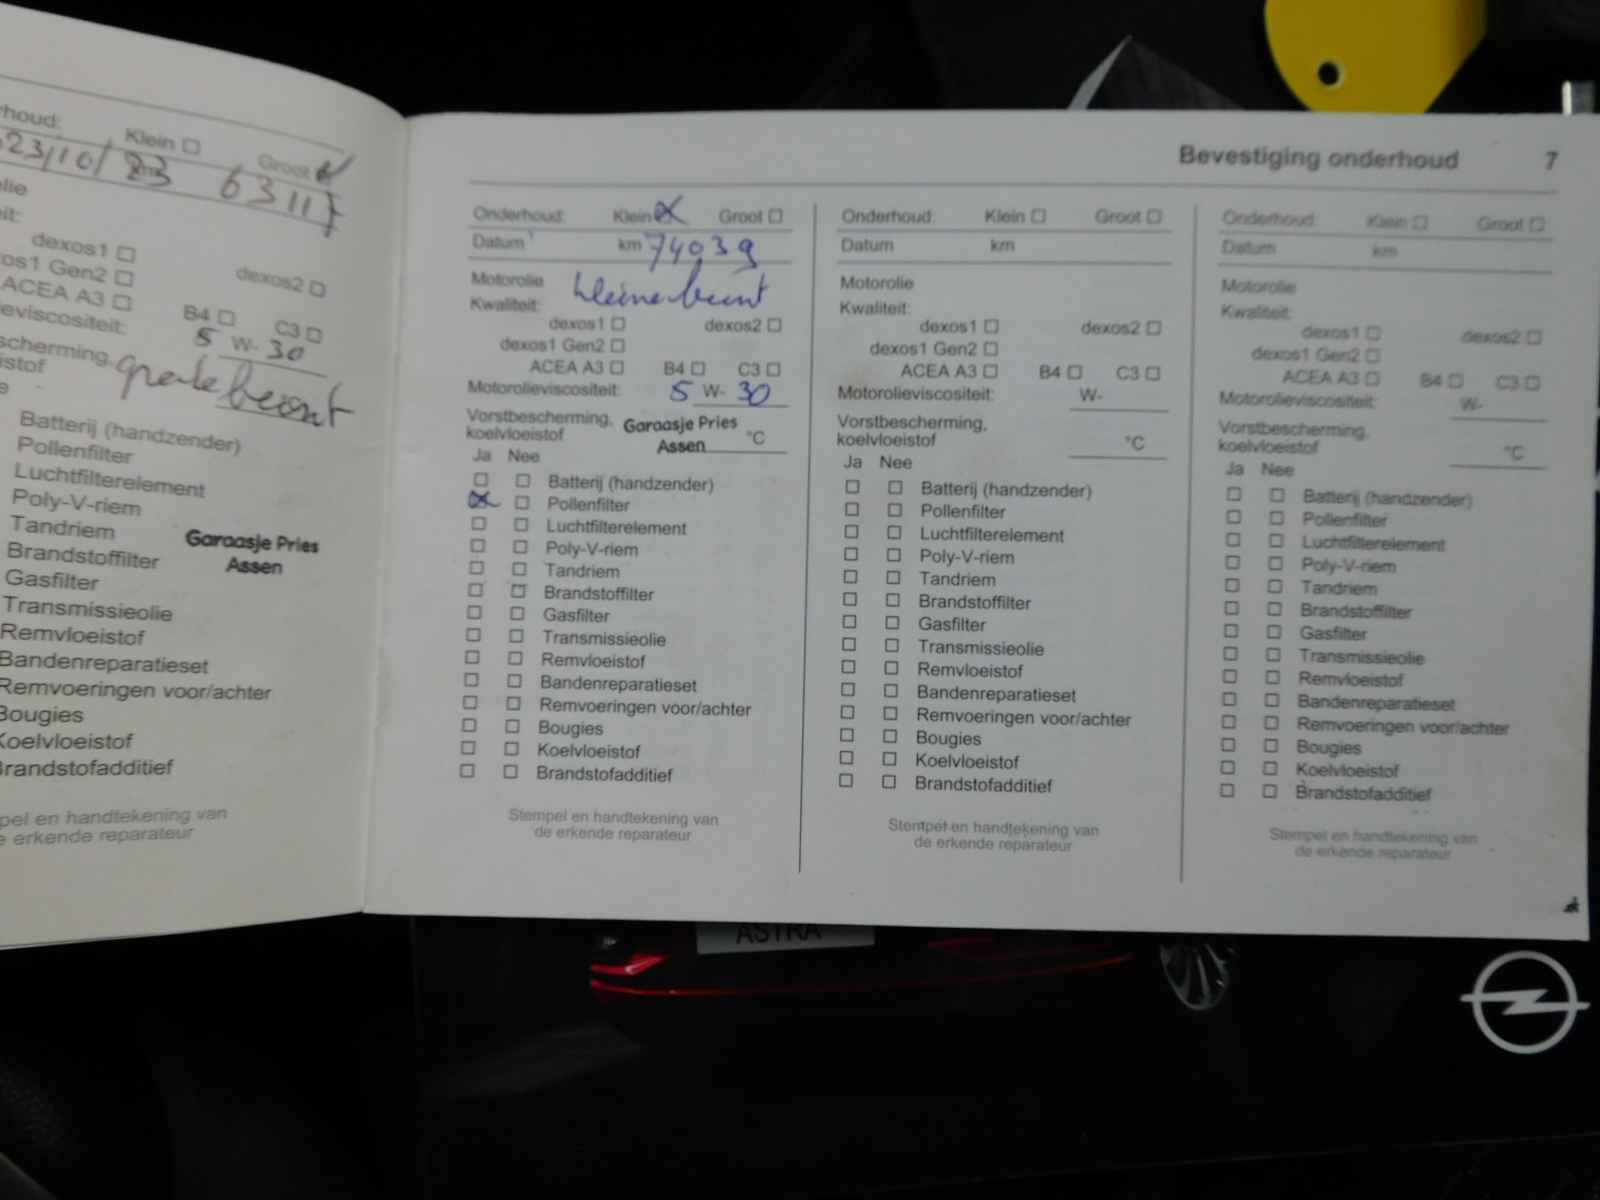 Klein ☐ Groot
23/10/23 63117
dexos1 ☐ dexos2 ☐
Gen2 ☐
ACEA A3 ☐ B4 ☐ C3 ☐
5 W- 30
grote beurt
Batterij (handzender)
Pollenfilter
Luchtfilterelement
Poly-V-riem
Tandriem
Brandstoffilter
Gasfilter
Transmissieolie
Remvloeistof
Bandenreparatieset
Remvoeringen voor/achter
Bougies
Koelvloeistof
Brandstofadditief
Garaasje Pries
Assen
en handtekening van
erkende reparateur
Bevestiging onderhoud 7
Onderhoud: Klein ☒ Groot ☐
Datum km 74039
Motorolie
kleine beurt
Kwaliteit:
dexos1 ☐ dexos2 ☐
dexos1 Gen2 ☐
ACEA A3 ☐ B4 ☐ C3 ☐
Motorolieviscositeit: 5 W- 30
Vorstbescherming,
koelvloeistof °C
Garaasje Pries
Assen
Ja Nee
☐ ☐ Batterij (handzender)
☒ ☐ Pollenfilter
☐ ☐ Luchtfilterelement
☐ ☐ Poly-V-riem
☐ ☐ Tandriem
☐ ☐ Brandstoffilter
☐ ☐ Gasfilter
☐ ☐ Transmissieolie
☐ ☐ Remvloeistof
☐ ☐ Bandenreparatieset
☐ ☐ Remvoeringen voor/achter
☐ ☐ Bougies
☐ ☐ Koelvloeistof
☐ ☐ Brandstofadditief
Stempel en handtekening van
de erkende reparateur
Onderhoud: Klein ☐ Groot ☐
Datum km
Motorolie
Kwaliteit:
dexos1 ☐ dexos2 ☐
dexos1 Gen2 ☐
ACEA A3 ☐ B4 ☐ C3 ☐
Motorolieviscositeit: W-
Vorstbescherming,
koelvloeistof °C
Ja Nee
☐ ☐ Batterij (handzender)
☐ ☐ Pollenfilter
☐ ☐ Luchtfilterelement
☐ ☐ Poly-V-riem
☐ ☐ Tandriem
☐ ☐ Brandstoffilter
☐ ☐ Gasfilter
☐ ☐ Transmissieolie
☐ ☐ Remvloeistof
☐ ☐ Bandenreparatieset
☐ ☐ Remvoeringen voor/achter
☐ ☐ Bougies
☐ ☐ Koelvloeistof
☐ ☐ Brandstofadditief
Stempel en handtekening van
de erkende reparateur
Onderhoud: Klein ☐ Groot ☐
Datum km
Motorolie
Kwaliteit:
dexos1 ☐ dexos2 ☐
dexos1 Gen2 ☐
ACEA A3 ☐ B4 ☐ C3 ☐
Motorolieviscositeit: W-
Vorstbescherming,
koelvloeistof °C
Ja Nee
☐ ☐ Batterij (handzender)
☐ ☐ Pollenfilter
☐ ☐ Luchtfilterelement
☐ ☐ Poly-V-riem
☐ ☐ Tandriem
☐ ☐ Brandstoffilter
☐ ☐ Gasfilter
☐ ☐ Transmissieolie
☐ ☐ Remvloeistof
☐ ☐ Bandenreparatieset
☐ ☐ Remvoeringen voor/achter
☐ ☐ Bougies
☐ ☐ Koelvloeistof
☐ ☐ Brandstofadditief
Stempel en handtekening van
de erkende reparateur
ASTRA